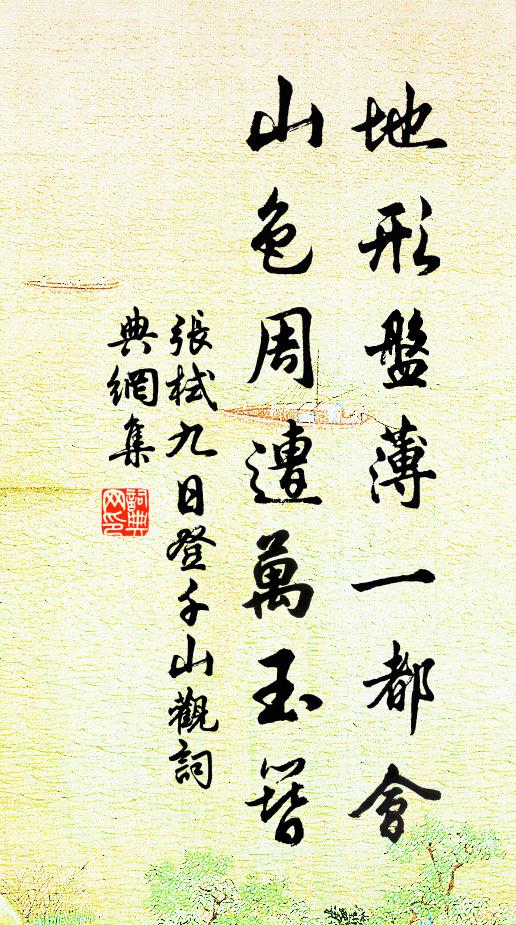 地形盤薄一都會
山色周遭萬玉簪
張栻九日登千山觀詞
典網集
詞典網印